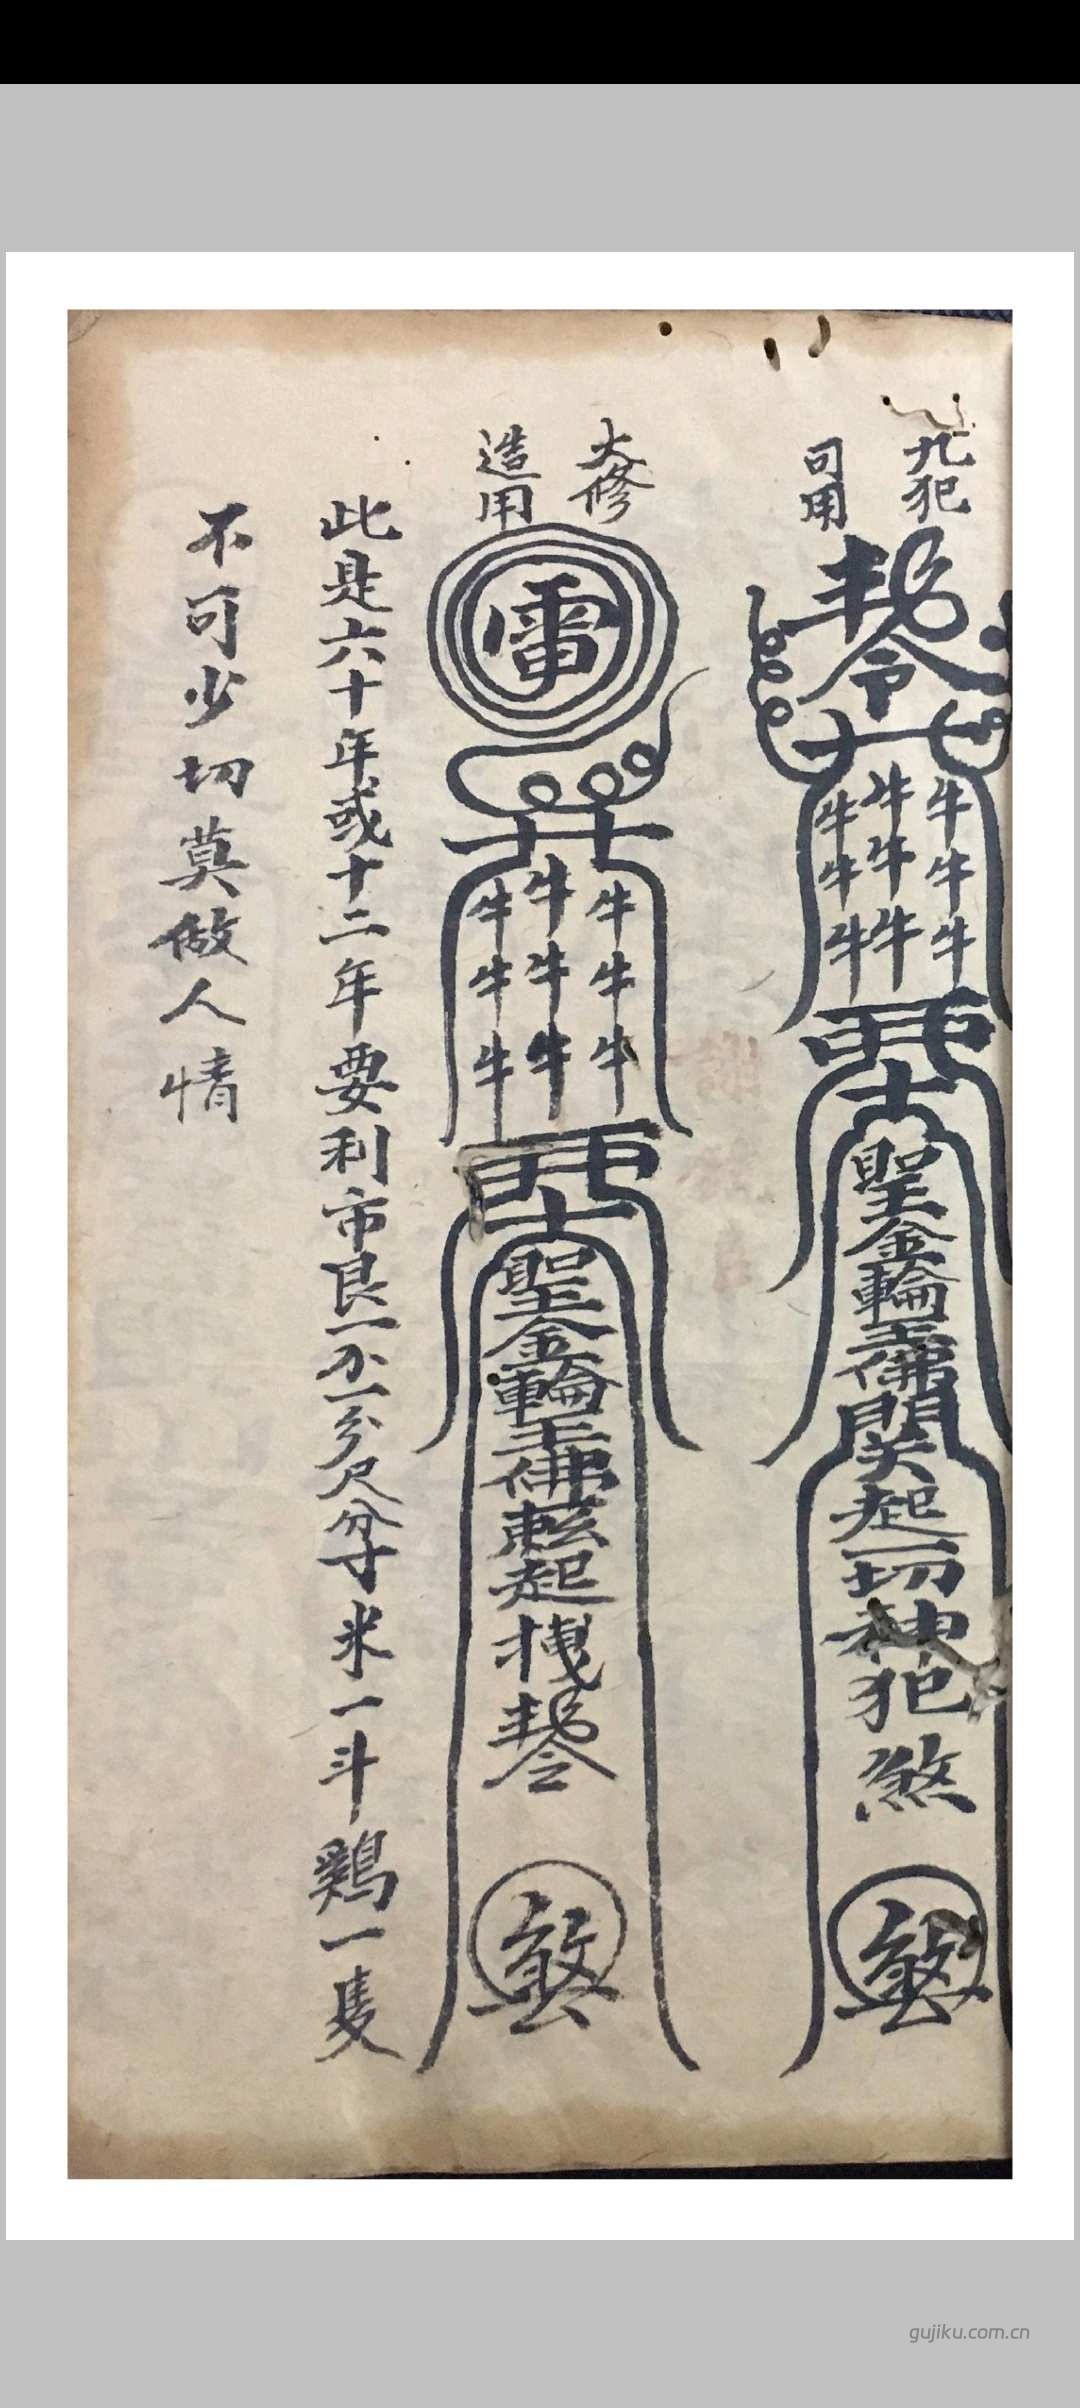 凢犯
可用
𠡠令
牛牛牛
牛牛牛
牛牛牛
聖金輪王佛関起一切神犯煞
大修
造用
雷
牛牛牛
牛牛牛
牛牛牛
聖金輪王佛
起
令
此是六十年或十二年要利市艮一
分尺
米一斗鷄一隻
不可少切莫做人情
gujiku.com.cn